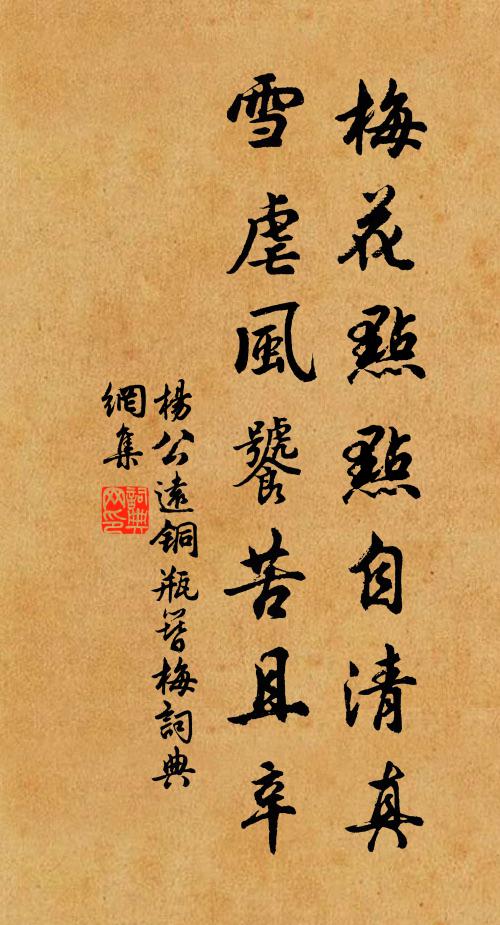 梅花點點自清真
雪虐風饕苦且辛
楊公遠銅瓶簪梅詞典
網集
詞典网印